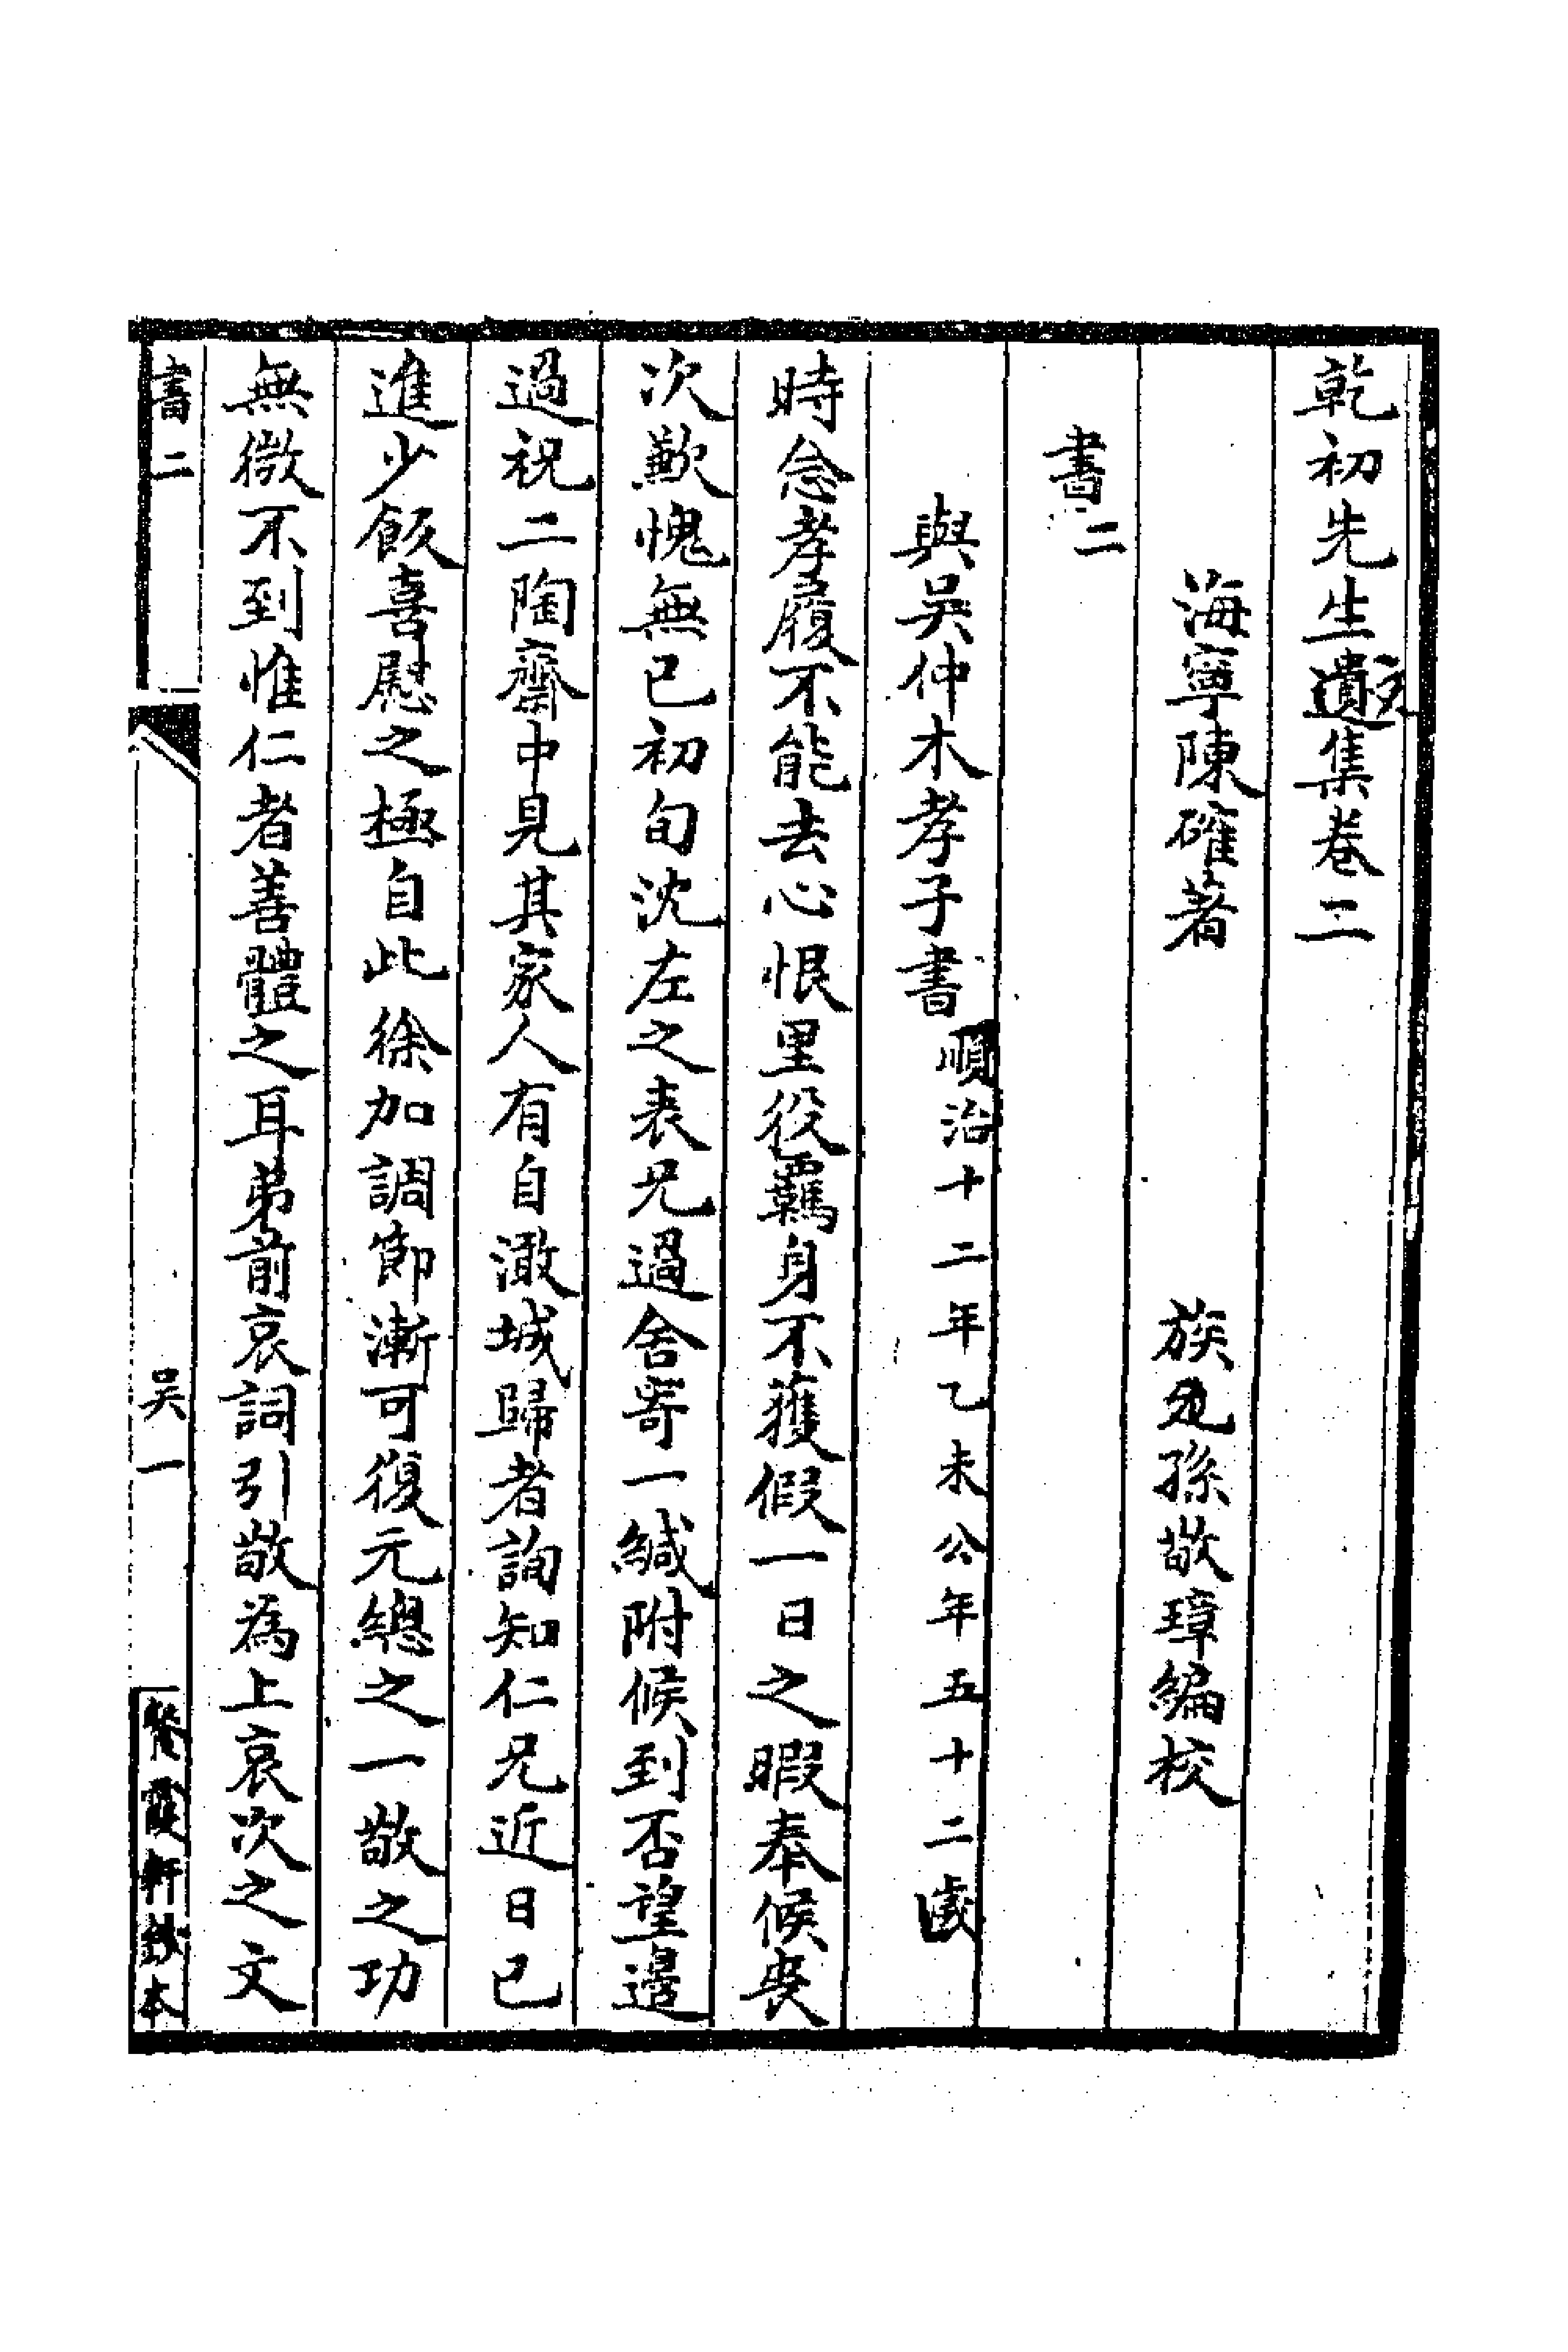 乾初先生遺文集卷二
海寧陳確著　族元孫敬璋編校
書二
與吳仲木孝子書順治十二年乙未公年五十二歲
時念孝履不能去心恨里役羈身不獲假一日之暇奉候喪
次歉愧無已初旬沈左之表兄過舍寄一緘附候到否望邊
過祝二陶齋中見其家人有自澉城歸者詢知仁兄近日已
進少飯喜慰之極自此徐加調節漸可復元總之一敬之功
無微不到惟仁者善體之耳弟前哀詞引敬為上哀次之文
書二　吳一　餐霞軒鈔本